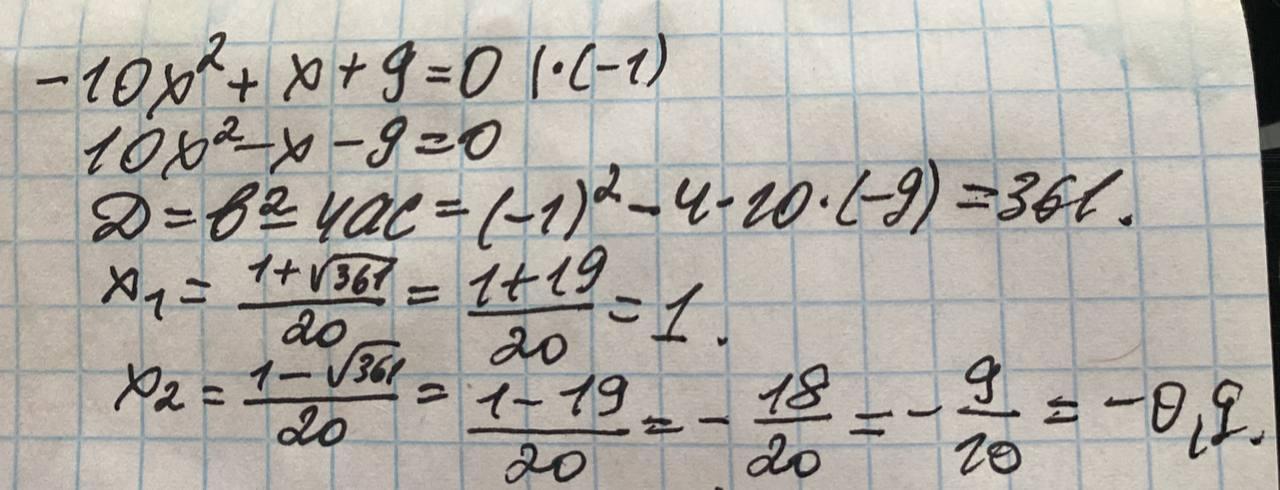 -10x² + x + 9 = 0 | · (-1)
10x² - x - 9 = 0
D = b² - 4ac = (-1)² - 4 · 10 · (-9) = 361.
x₁ = (1+√361)/20 = (1+19)/20 = 1.
x₂ = (1-√361)/20 = (1-19)/20 = -18/20 = -9/10 = -0,9.